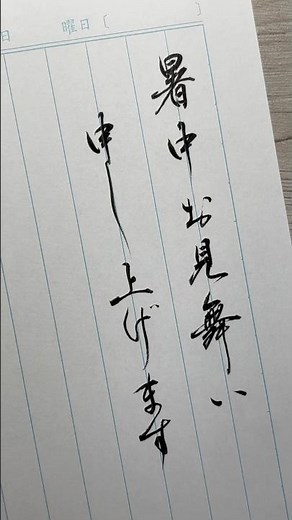 日 曜日〔 〕
暑中お見舞い
申し上げます